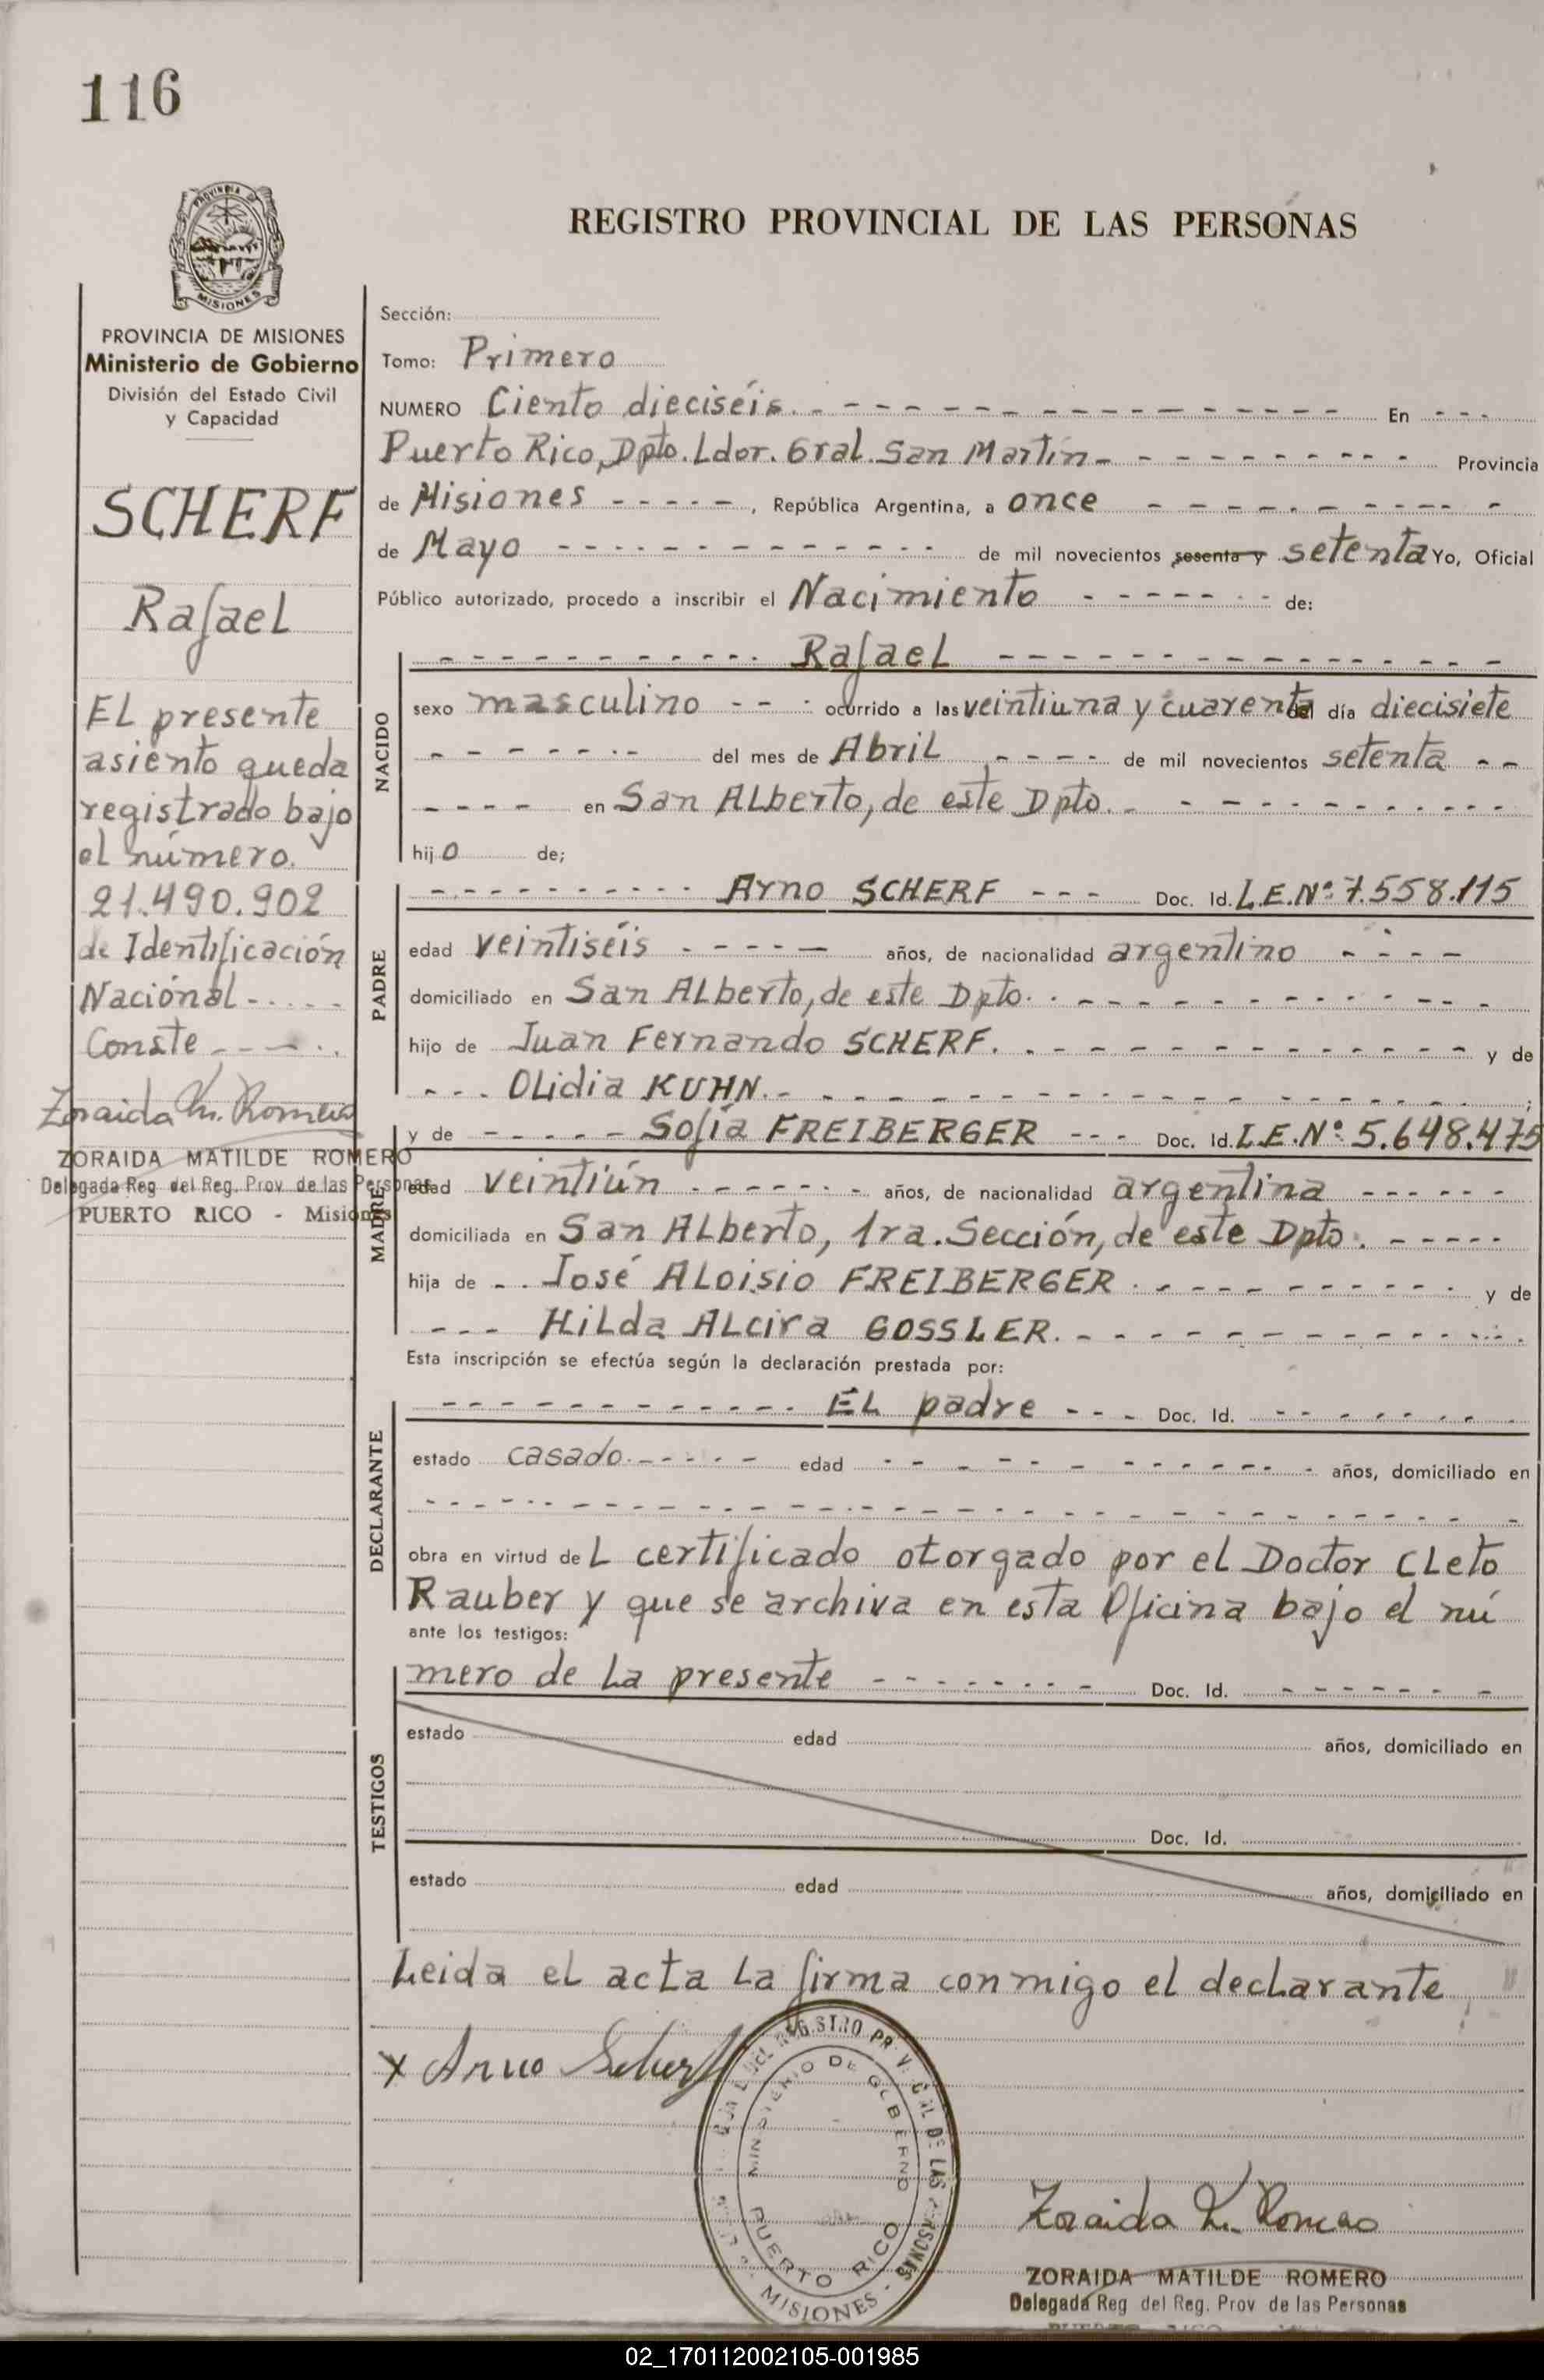 116
PROVINCIA DE MISIONES
Ministerio de Gobierno
División del Estado Civil
y Capacidad
SCHERF
Rafael
El presente
asiento queda
registrado bajo
el número.
21.490.902
de Identificación
Nacional
Conste
Zoraida M. Romero
ZORAIDA MATILDE ROMERO
Delegada Reg del Reg. Prov de las Personas
PUERTO RICO - Misiones
REGISTRO PROVINCIAL DE LAS PERSONAS
Sección:
Tomo: Primero
NUMERO Ciento dieciséis. En
Puerto Rico, Dpto. Ldor. Gral. San Martín Provincia
de Misiones, República Argentina, a once
de Mayo de mil novecientos sesenta y setenta Yo, Oficial
Público autorizado, procedo a inscribir el Nacimiento de:
NACIDO
Rafael
sexo masculino ocurrido a las veintiuna y cuarenta del día diecisiete
del mes de Abril de mil novecientos setenta
en San Alberto, de este Dpto.
hijo de;
PADRE
Arno SCHERF Doc. Id. L.E.Nº 7.558.115
edad veintiséis años, de nacionalidad argentino
domiciliado en San Alberto, de este Dpto.
hijo de Juan Fernando SCHERF. y de
Olidia KUHN. ;
MADRE
y de Sofía FREIBERGER Doc. Id. L.E.Nº 5.648.475
edad veintiún años, de nacionalidad argentina
domiciliada en San Alberto, 1ra. Sección, de este Dpto.
hija de José Aloisio FREIBERGER. y de
Hilda Alcira GOSSLER.
Esta inscripción se efectúa según la declaración prestada por:
DECLARANTE
El padre Doc. Id.
estado casado. edad años, domiciliado en
obra en virtud del certificado otorgado por el Doctor Cleto
Rauber y que se archiva en esta Oficina bajo el nú
ante los testigos:
TESTIGOS
mero de la presente Doc. Id.
estado edad años, domiciliado en
Doc. Id.
estado edad años, domiciliado en
Leida el acta la firma conmigo el declarante
x Arno Scherf
REGISTRO PROVINCIAL DE LAS PERSONAS
MINISTERIO DE GOBIERNO
PUERTO RICO
MISIONES
Zoraida M. Romero
ZORAIDA MATILDE ROMERO
Delegada Reg del Reg. Prov de las Personas
02_170112002105-001985